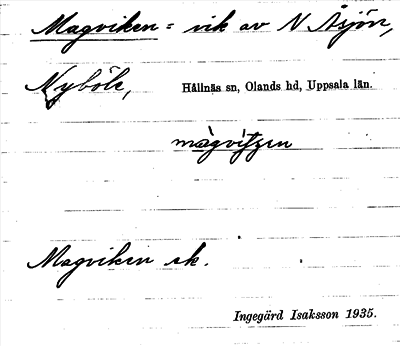 Magviken = vik av N Åsjön,
Nyböle, Hållnäs sn, Olands hd, Uppsala län.
Magviken sk.
Ingegärd Isaksson 1935.